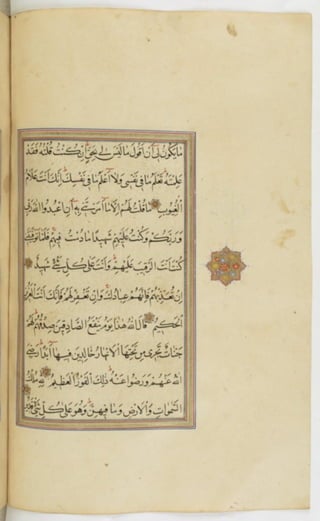 ما يكون لي أن أقول ما ليس لي بحق إن كنت قلته فقد
علمته تعلم ما في نفسي ولا أعلم ما في نفسك إنك أنت علام
الغيوب ما قلت لهم إلا ما أمرتني به أن اعبدوا الله ربي
وربكم وكنت عليهم شهيدا ما دمت فيهم فلما توفيتني
كنت أنت الرقيب عليهم وأنت على كل شيء شهيد
إن تعذبهم فإنهم عبادك وإن تغفر لهم فإنك أنت العزيز
الحكيم قال الله هذا يوم ينفع الصادقين صدقهم لهم
جنات تجري من تحتها الأنهار خالدين فيها أبدا رضي
الله عنهم ورضوا عنه ذلك الفوز العظيم لله ملك
السموات والأرض وما فيهن وهو على كل شيء قدير